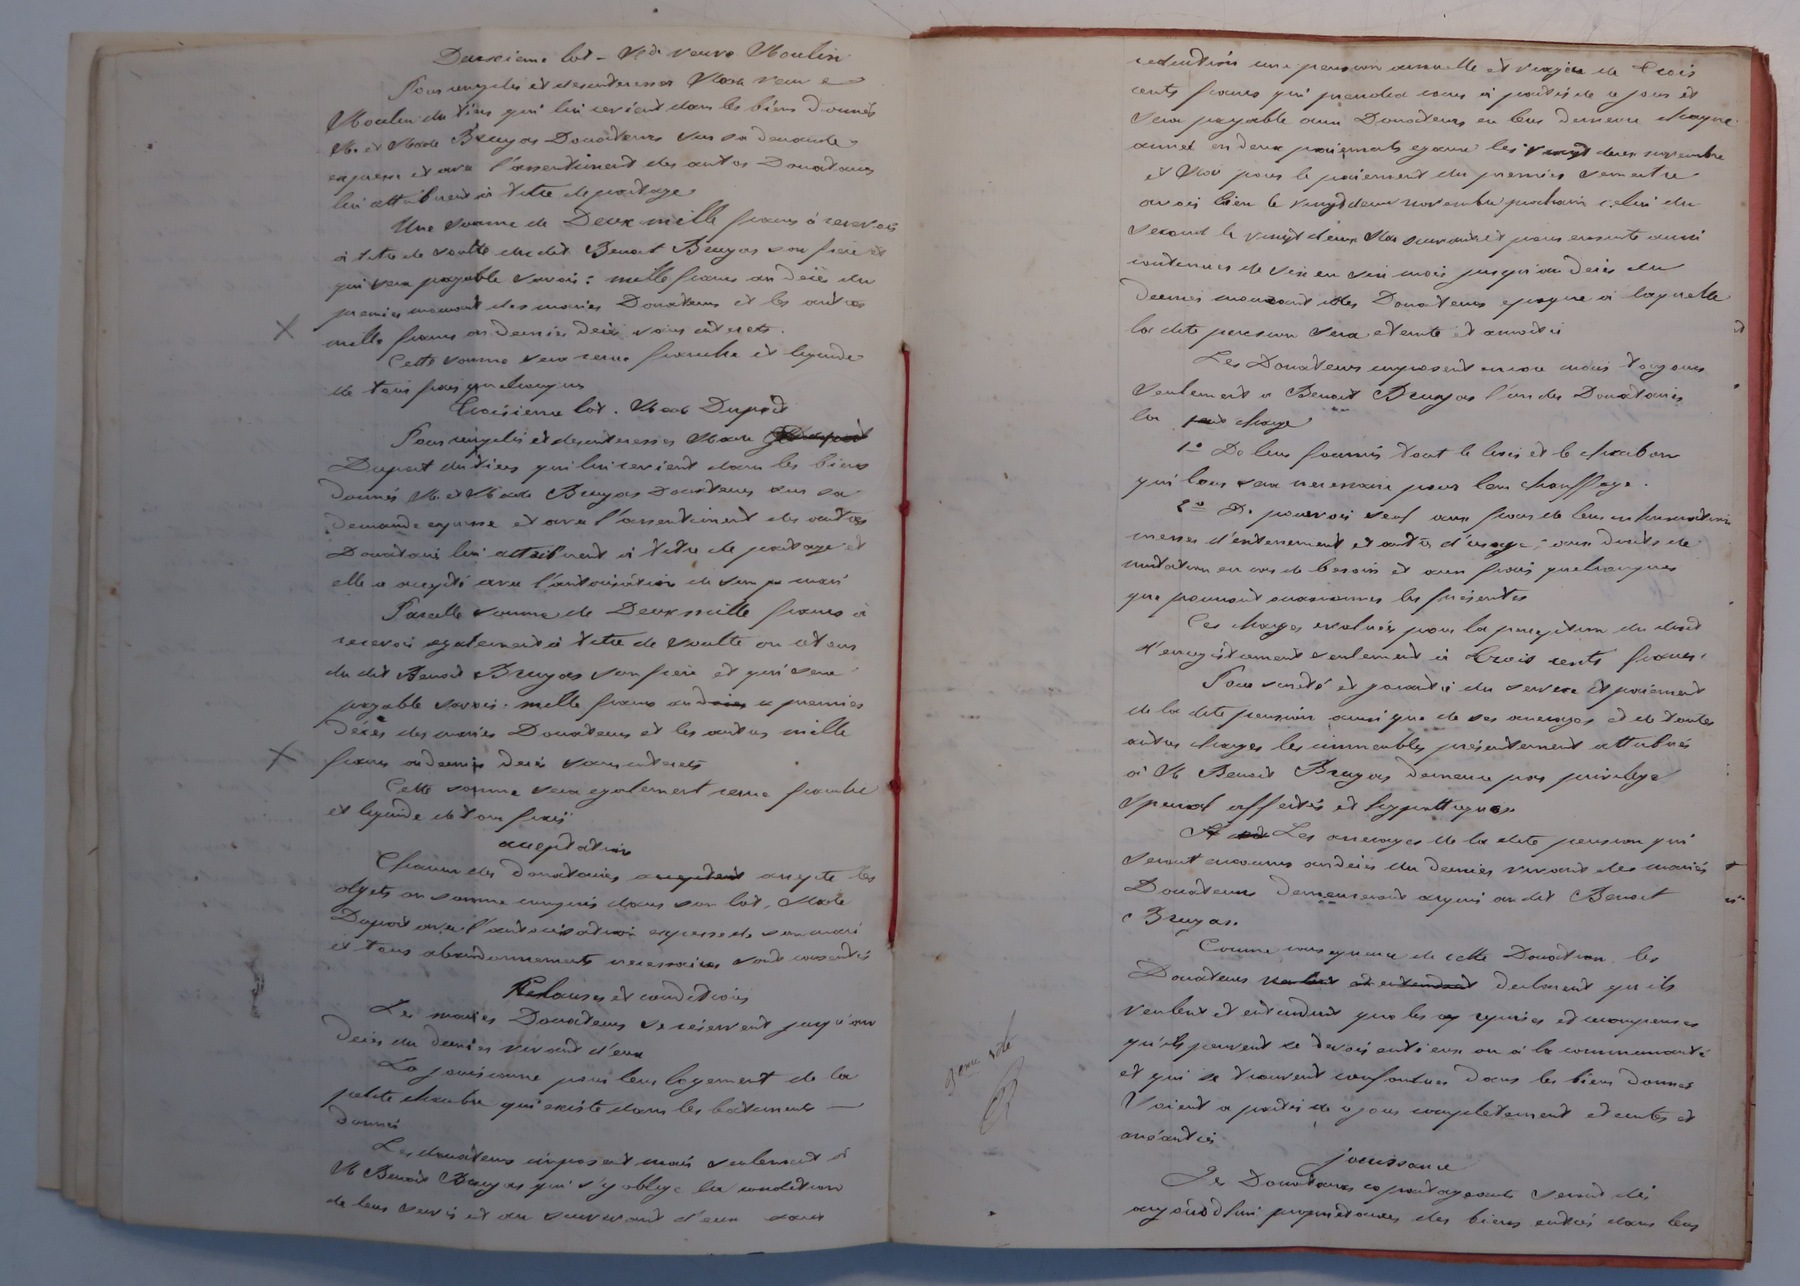 Deuxième lot - Mde veuve Moulin
Pour remplir et desinteresser Made veuve
Moulin du tiers qui lui revient dans les biens donnés
M. et Made Bruyas Donateurs sur sa demande
expresse et avec l'assentiment des autres Donataires
lui attribuent à titre de partage
Une somme de Deux mille francs à recevoir
à titre de soulte du dit Benoit Bruyas son frère et
qui sera payable savoir : mille francs au décès du
premier mourant des mariés Donateurs et les autres
mille francs au dernier décès sans interets.
Cette somme sera reçue franche et liquide
de tous frais quelconques
Troisième lot. Made Duport
Pour remplir et desinteresser Made
Duport du tiers qui lui revient dans les biens
donnés M. et Made Bruyas Donateurs sur sa
demande expresse et avec l'assentiment des autres
Donataires lui attribuent à titre de partage et
elle a accepté avec l'autorisation de son mari
Pareille somme de Deux mille francs à
recevoir egalement à titre de soulte
du dit Benoit Bruyas son frère et qui sera
payable savoir : mille francs au premier
décès des mariés Donateurs et les autres mille
francs au dernier decès sans interets
Cette somme sera egalement reçue franche
et liquide de tous frais
acceptation
Chacun des donataires accepte les
objets ou somme compris dans son lot, Made
Duport avec l'autorisation expresse de son mari
et tous abandonnements necessaires sont consentis
Clauses et conditions
Les mariés Donateurs se réservent jusqu'au
décès du dernier vivant d'eux
La jouissance pour leur logement de la
petite chambre qui existe dans les bâtiments
donnés
Les donateurs imposent mais seulement à
M Benoit Bruyas qui s'y oblige la condition
de leur servir et au survivant d'eux sans
réduction une pension annuelle et viagère de trois
cents francs qui prendra cours à partir de ce jour et
sera payable aux Donateurs en leur demeure chaque
année en deux paiements egaux les vingt deux novembre
et Mai pour le paiement du premier semestre
avoir lieu le vingt deux novembre prochain celui du
second le vingt deux Mai suivant et pour ensuite ainsi
continuer de six en six mois jusqu'au décès du
dernier mourant des Donateurs epoque à laquelle
la dite pension sera eteinte et amortie
Les Donateurs imposent encore mais toujours
seulement à Benoit Bruyas l'un des Donataires
la charge
1° De leur fournir tout le bois et le charbon
qui leur sera necessaire pour leur chauffage.
2° De pourvoir seul aux frais de leur inhumation
messes d'enterrement et autres d'usage, aux droits de
mutation en cas de besoin et aux frais quelconques
que pourront occasionner les présentes
Ces charges evaluées pour la perception du droit
d'enregistrement seulement à trois cents francs.
Pour sureté et garantie du service et paiement
de la dite pension ainsi que de ses arrerages et de toutes
autres charges les immeubles présentement attribués
à M Benoit Bruyas demeure par privilege
special affectés et hypothequés
Les arrerages de la dite pension qui
seront au décès du dernier vivant des mariés
Donateurs demeureront acquis au dit Benoit
Bruyas.
Comme consequence de cette Donation, les
Donateurs declarent qu'ils
veulent et entendent que les reprises et recompenses
qu'ils peuvent se devoir entre eux ou à la communauté
et qui se trouvent confondues dans les biens donnés
Soient a partir de ce jour completement eteintes et
aneanties
3eme rôle
jouissance
Les Donataires copartageants seront dès
aujourd'hui propriétaires des biens entrés dans leurs